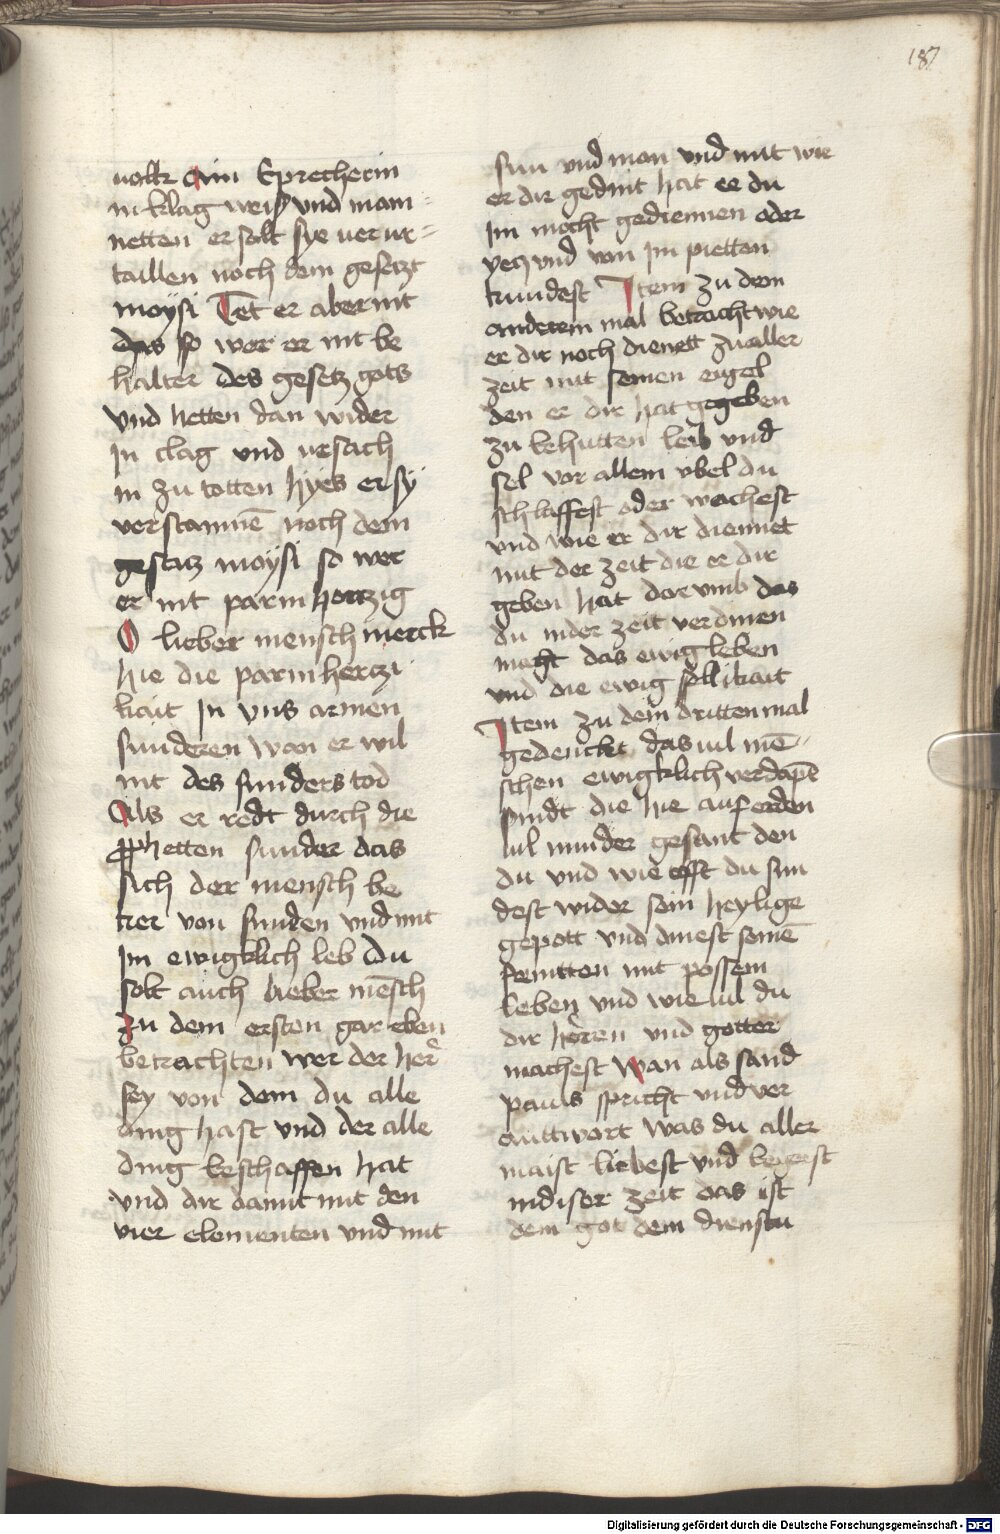 187
volk ain Eprecherin
in klag weiß und main
netten er solt sye verur
taillen noch dem gesetzt
moÿsi Tet er aber nit
das so wer er nit be
halter des gesetz gots
und hetten dan wider
jn clag und ursach
in zu totten hyes er sÿ
verstainnē noch dem
gesetz moÿsi so wer
er nit parmhertzig
O lieber mensch merck
hie die parmhertzi
kait jn uns armen
sunderen wan er wil
nit des sunders tod
Als er redt durch die
prophetten sunder das
sich der mensch be
ker von sunden und mit
jm ewigklich leb Du
solt auch lieber mēsch
zu dem ersten gar eben
betrachten wer der her
sey von dem du alle
ding hast und der alle
ding beschaffen hat
und dir damit mit den
vier elementen und mit
sun und mon und mit wie
er dir gedint hat ee du
jm mocht gediennen oder
und von jm pietten
kundest Item zu dem
anderem mal betracht wie
er dir noch dienett zu aller
zeit mit seinen engel
den er dir hat gegeben
zu behutten leib und
sel vor allem übel du
schlaffest oder wachest
und wie er dir diennet
mit der zeit die er dir
geben hat dorumb das
du in der zeit verdinen
macht das ewig leben
und die ewig sellikait
Item zu dem dritten mal
gedenckt das vil mē
schen ewigklich verdapt
sindt die hie auf erden
vil minder gesant den
du und wie offt du sun
dest wider sein heylige
gepott und seinē
mit possem
leben und wie vil du
dir heren und gotter
machest Wan als sand
pauls spricht und ver
anttwort was du aller
maist liebest und begerst
in diser zeit das ist
dem got dem dienstu
Digitalisierung gefördert durch die Deutsche Forschungsgemeinschaft - DFG